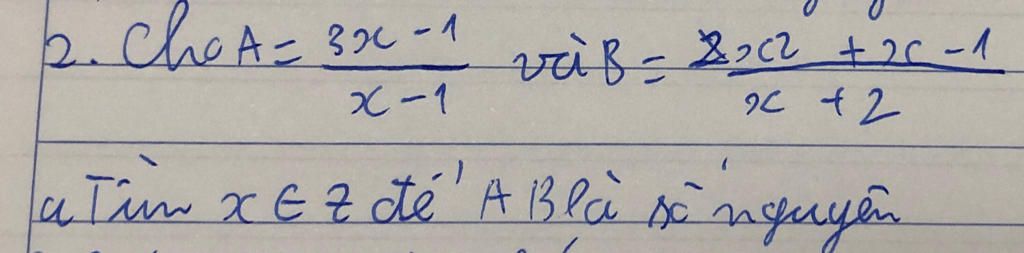 2. Cho A = \frac{3x - 1}{x - 1} và B = \frac{2x^2 + x - 1}{x + 2}
a Tìm x ∈ Z để A B là số nguyên